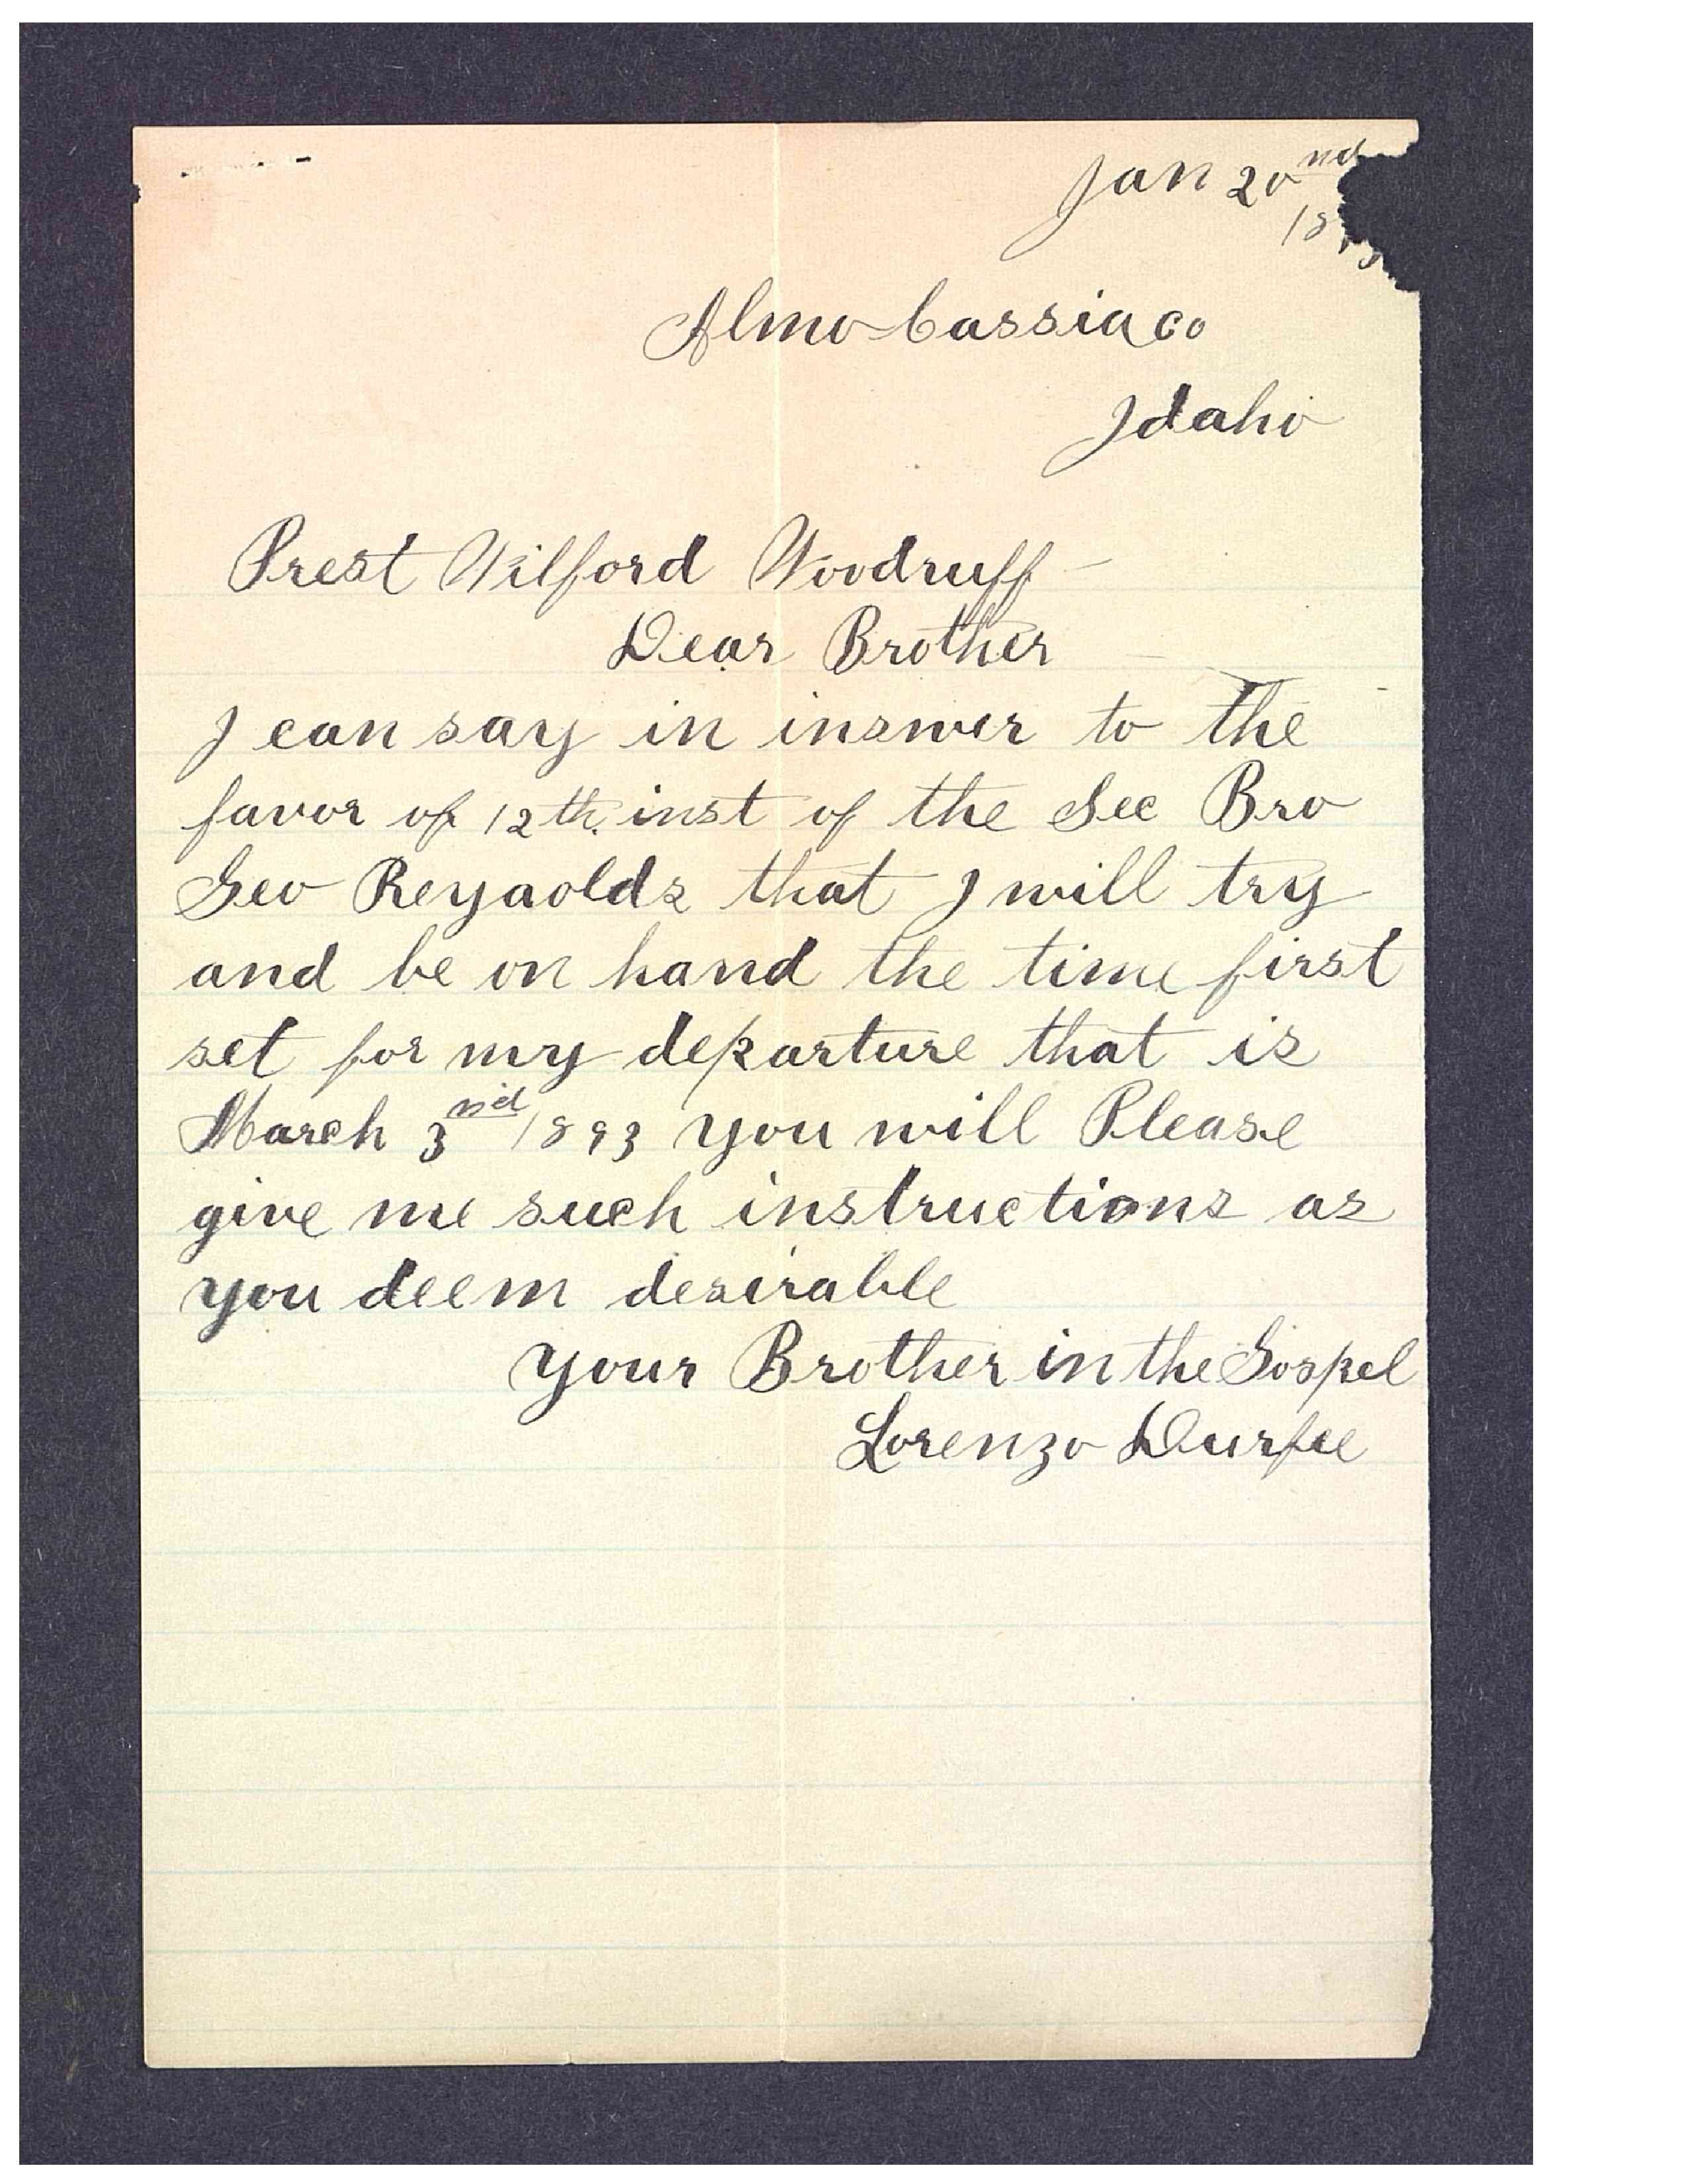 Jan 20nd
18
Almo Cassia co
Idaho
Prest Wilford Woodruff
Dear Brother
I can say in inswer to the
favor of 12th. inst of the Sec Bro
Geo Reyaolds that I will try
and be on hand the time first
set for my departure that is
March 3nd 1893 you will Please
give me such instructions as
you deem desirable
your Brother in the Gospel
Lorenzo Durfee